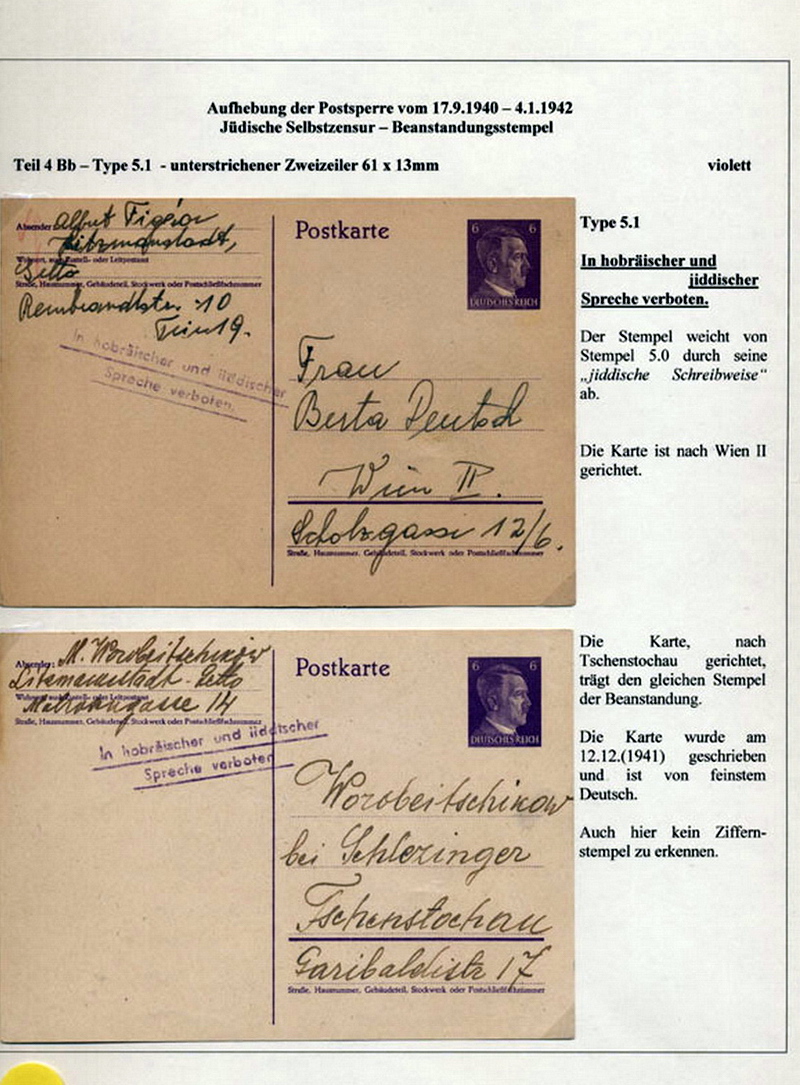 Aufhebung der Postsperre vom 17.9.1940 – 4.1.1942
Jüdische Selbstzensur – Beanstandungsstempel
Teil 4 Bb – Type 5.1 - unterstrichener Zweizeiler 61 x 13mm
violett
Absender:
Wohnort, auch Zustell- oder Leitpostamt
Getto
Straße, Hausnummer, Gebäudeteil, Stockwerk oder Postschließfachnummer
Rembrandtstr. 10
In hobräischer und jiddischer
Spreche verboten.
Postkarte
6 6
DEUTSCHES REICH
Frau
Berta Deutsch
Wien II.
Scholzgasse 12/6.
Straße, Hausnummer, Gebäudeteil, Stockwerk oder Postschließfachnummer
Type 5.1
In hobräischer und
jiddischer
Spreche verboten.
Der Stempel weicht von
Stempel 5.0 durch seine
„jiddische Schreibweise“
ab.
Die Karte ist nach Wien II
gerichtet.
Absender: M. Worobeitschikow
Litzmannstadt - Getto
Wohnort, auch Zustell- oder Leitpostamt
14
Straße, Hausnummer, Gebäudeteil, Stockwerk oder Postschließfachnummer
In hobräischer und jiddischer
Spreche verboten
Postkarte
6 6
DEUTSCHES REICH
Worobeitschikow
bei Schlezinger
Tschenstochau
Garibaldistr 17
Straße, Hausnummer, Gebäudeteil, Stockwerk oder Postschließfachnummer
Die Karte, nach
Tschenstochau gerichtet,
trägt den gleichen Stempel
der Beanstandung.
Die Karte wurde am
12.12.(1941) geschrieben
und ist von feinstem
Deutsch.
Auch hier kein Ziffern-
stempel zu erkennen.